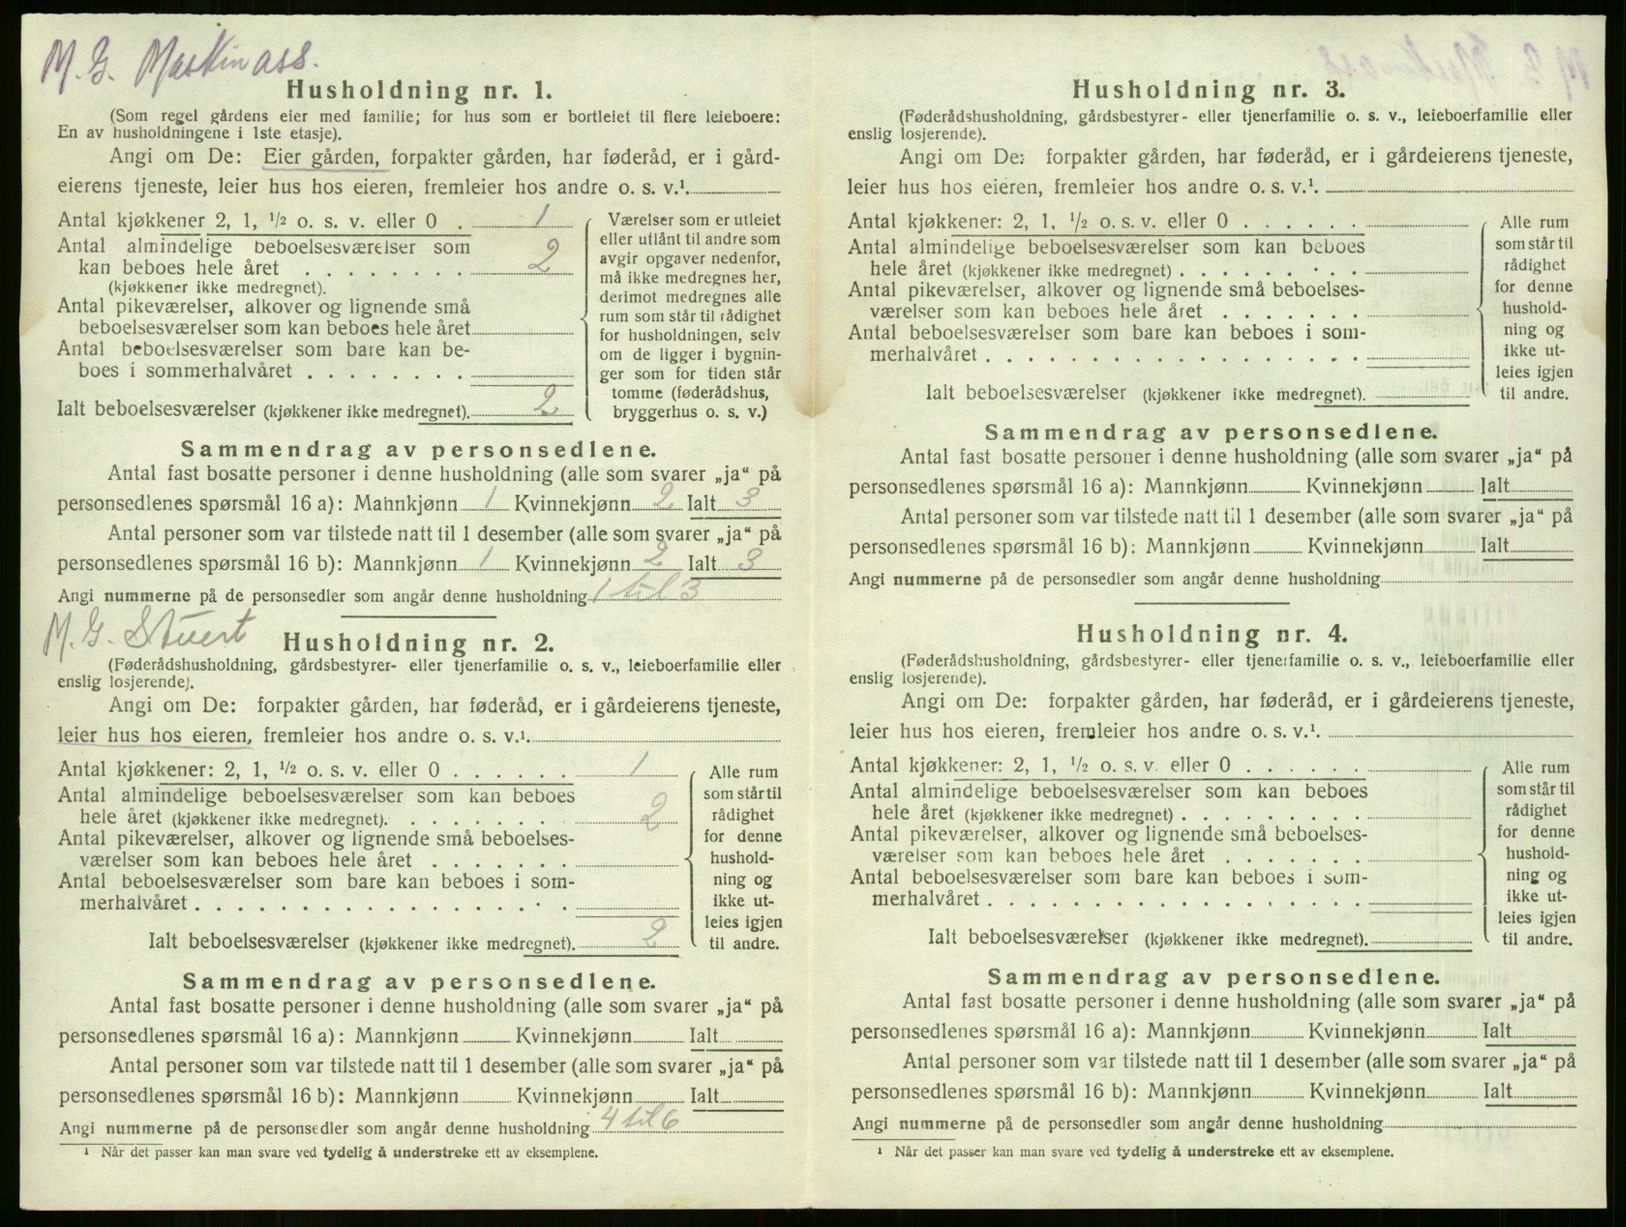 M. G. Maskinass.
Husholdning nr. 1.
(Som regel gårdens eier med familie; for hus som er bortleiet til flere leieboere:
En av husholdningene i 1ste etasje).
Angi om De: Eier gården, forpakter gården, har føderåd, er i gård-
eierens tjeneste, leier hus hos eieren, fremleier hos andre o. s. v.¹
Antal kjøkkener 2, 1, ½ o. s. v. eller 0 . 1
Antal almindelige beboelsesværelser som
kan beboes hele året . . . . . . . . 2
(kjøkkener ikke medregnet).
Antal pikeværelser, alkover og lignende små
beboelsesværelser som kan beboes hele året
Antal beboelsesværelser som bare kan be-
boes i sommerhalvåret . . . . . . .
Ialt beboelsesværelser (kjøkkener ikke medregnet). 2
Værelser som er utleiet
eller utlånt til andre som
avgir opgaver nedenfor,
må ikke medregnes her,
derimot medregnes alle
rum som står til rådighet
for husholdningen, selv
om de ligger i bygnin-
ger som for tiden står
tomme (føderådshus,
bryggerhus o. s. v.)
Sammendrag av personsedlene.
Antal fast bosatte personer i denne husholdning (alle som svarer „ja“ på
personsedlenes spørsmål 16 a): Mannkjønn 1 Kvinnekjønn 2 Ialt 3
Antal personer som var tilstede natt til 1 desember (alle som svarer „ja“ på
personsedlenes spørsmål 16 b): Mannkjønn 1 Kvinnekjønn 2 Ialt 3
Angi nummerne på de personsedler som angår denne husholdning 1 til 3
M. G. Stuert
Husholdning nr. 2.
(Føderådshusholdning, gårdsbestyrer- eller tjenerfamilie o. s. v., leieboerfamilie eller
enslig losjerende).
Angi om De: forpakter gården, har føderåd, er i gårdeierens tjeneste,
leier hus hos eieren, fremleier hos andre o. s. v.¹
Antal kjøkkener: 2, 1, ½ o. s. v. eller 0 . . . . . . 1
Antal almindelige beboelsesværelser som kan beboes
hele året (kjøkkener ikke medregnet). . . . . . . . 2
Antal pikeværelser, alkover og lignende små beboelses-
værelser som kan beboes hele året . . . . . . .
Antal beboelsesværelser som bare kan beboes i som-
merhalvåret . . . . . . . . . . . . . . . . . . .
Ialt beboelsesværelser (kjøkkener ikke medregnet). 2
Alle rum
som står til
rådighet
for denne
hushold-
ning og
ikke ut-
leies igjen
til andre.
Sammendrag av personsedlene.
Antal fast bosatte personer i denne husholdning (alle som svarer „ja“ på
personsedlenes spørsmål 16 a): Mannkjønn Kvinnekjønn Ialt
Antal personer som var tilstede natt til 1 desember (alle som svarer „ja“ på
personsedlenes spørsmål 16 b): Mannkjønn Kvinnekjønn Ialt
Angi nummerne på de personsedler som angår denne husholdning 4 til 6
¹ Når det passer kan man svare ved tydelig å understreke ett av eksemplene.
Husholdning nr. 3.
(Føderådshusholdning, gårdsbestyrer- eller tjenerfamilie o. s. v., leieboerfamilie eller
enslig losjerende).
Angi om De: forpakter gården, har føderåd, er i gårdeierens tjeneste,
leier hus hos eieren, fremleier hos andre o. s. v.¹
Antal kjøkkener: 2, 1, ½ o. s. v. eller 0 . . . . . .
Antal almindelige beboelsesværelser som kan beboes
hele året (kjøkkener ikke medregnet) . . . . . . . .
Antal pikeværelser, alkover og lignende små beboelses-
værelser som kan beboes hele året . . . . . . .
Antal beboelsesværelser som bare kan beboes i som-
merhalvåret . . . . . . . . . . . . . . . . . . .
Ialt beboelsesværelser (kjøkkener ikke medregnet).
Alle rum
som står til
rådighet
for denne
hushold-
ning og
ikke ut-
leies igjen
til andre.
Sammendrag av personsedlene.
Antal fast bosatte personer i denne husholdning (alle som svarer „ja“ på
personsedlenes spørsmål 16 a): Mannkjønn Kvinnekjønn Ialt
Antal personer som var tilstede natt til 1 desember (alle som svarer „ja“ på
personsedlenes spørsmål 16 b): Mannkjønn Kvinnekjønn Ialt
Angi nummerne på de personsedler som angår denne husholdning
Husholdning nr. 4.
(Føderådshusholdning, gårdsbestyrer- eller tjenerfamilie o. s. v., leieboerfamilie eller
enslig losjerende).
Angi om De: forpakter gården, har føderåd, er i gårdeierens tjeneste,
leier hus hos eieren, fremleier hos andre o. s. v.¹
Antal kjøkkener: 2, 1, ½ o. s. v. eller 0 . . . . . .
Antal almindelige beboelsesværelser som kan beboes
hele året (kjøkkener ikke medregnet) . . . . . . . .
Antal pikeværelser, alkover og lignende små beboelses-
værelser som kan beboes hele året . . . . . . .
Antal beboelsesværelser som bare kan beboes i som-
merhalvåret . . . . . . . . . . . . . . . . . . .
Ialt beboelsesværelser (kjøkkener ikke medregnet).
Alle rum
som står til
rådighet
for denne
hushold-
ning og
ikke ut-
leies igjen
til andre.
Sammendrag av personsedlene.
Antal fast bosatte personer i denne husholdning (alle som svarer „ja“ på
personsedlenes spørsmål 16 a): Mannkjønn Kvinnekjønn Ialt
Antal personer som var tilstede natt til 1 desember (alle som svarer „ja“ på
personsedlenes spørsmål 16 b): Mannkjønn Kvinnekjønn Ialt
Angi nummerne på de personsedler som angår denne husholdning
¹ Når det passer kan man svare ved tydelig å understreke ett av eksemplene.